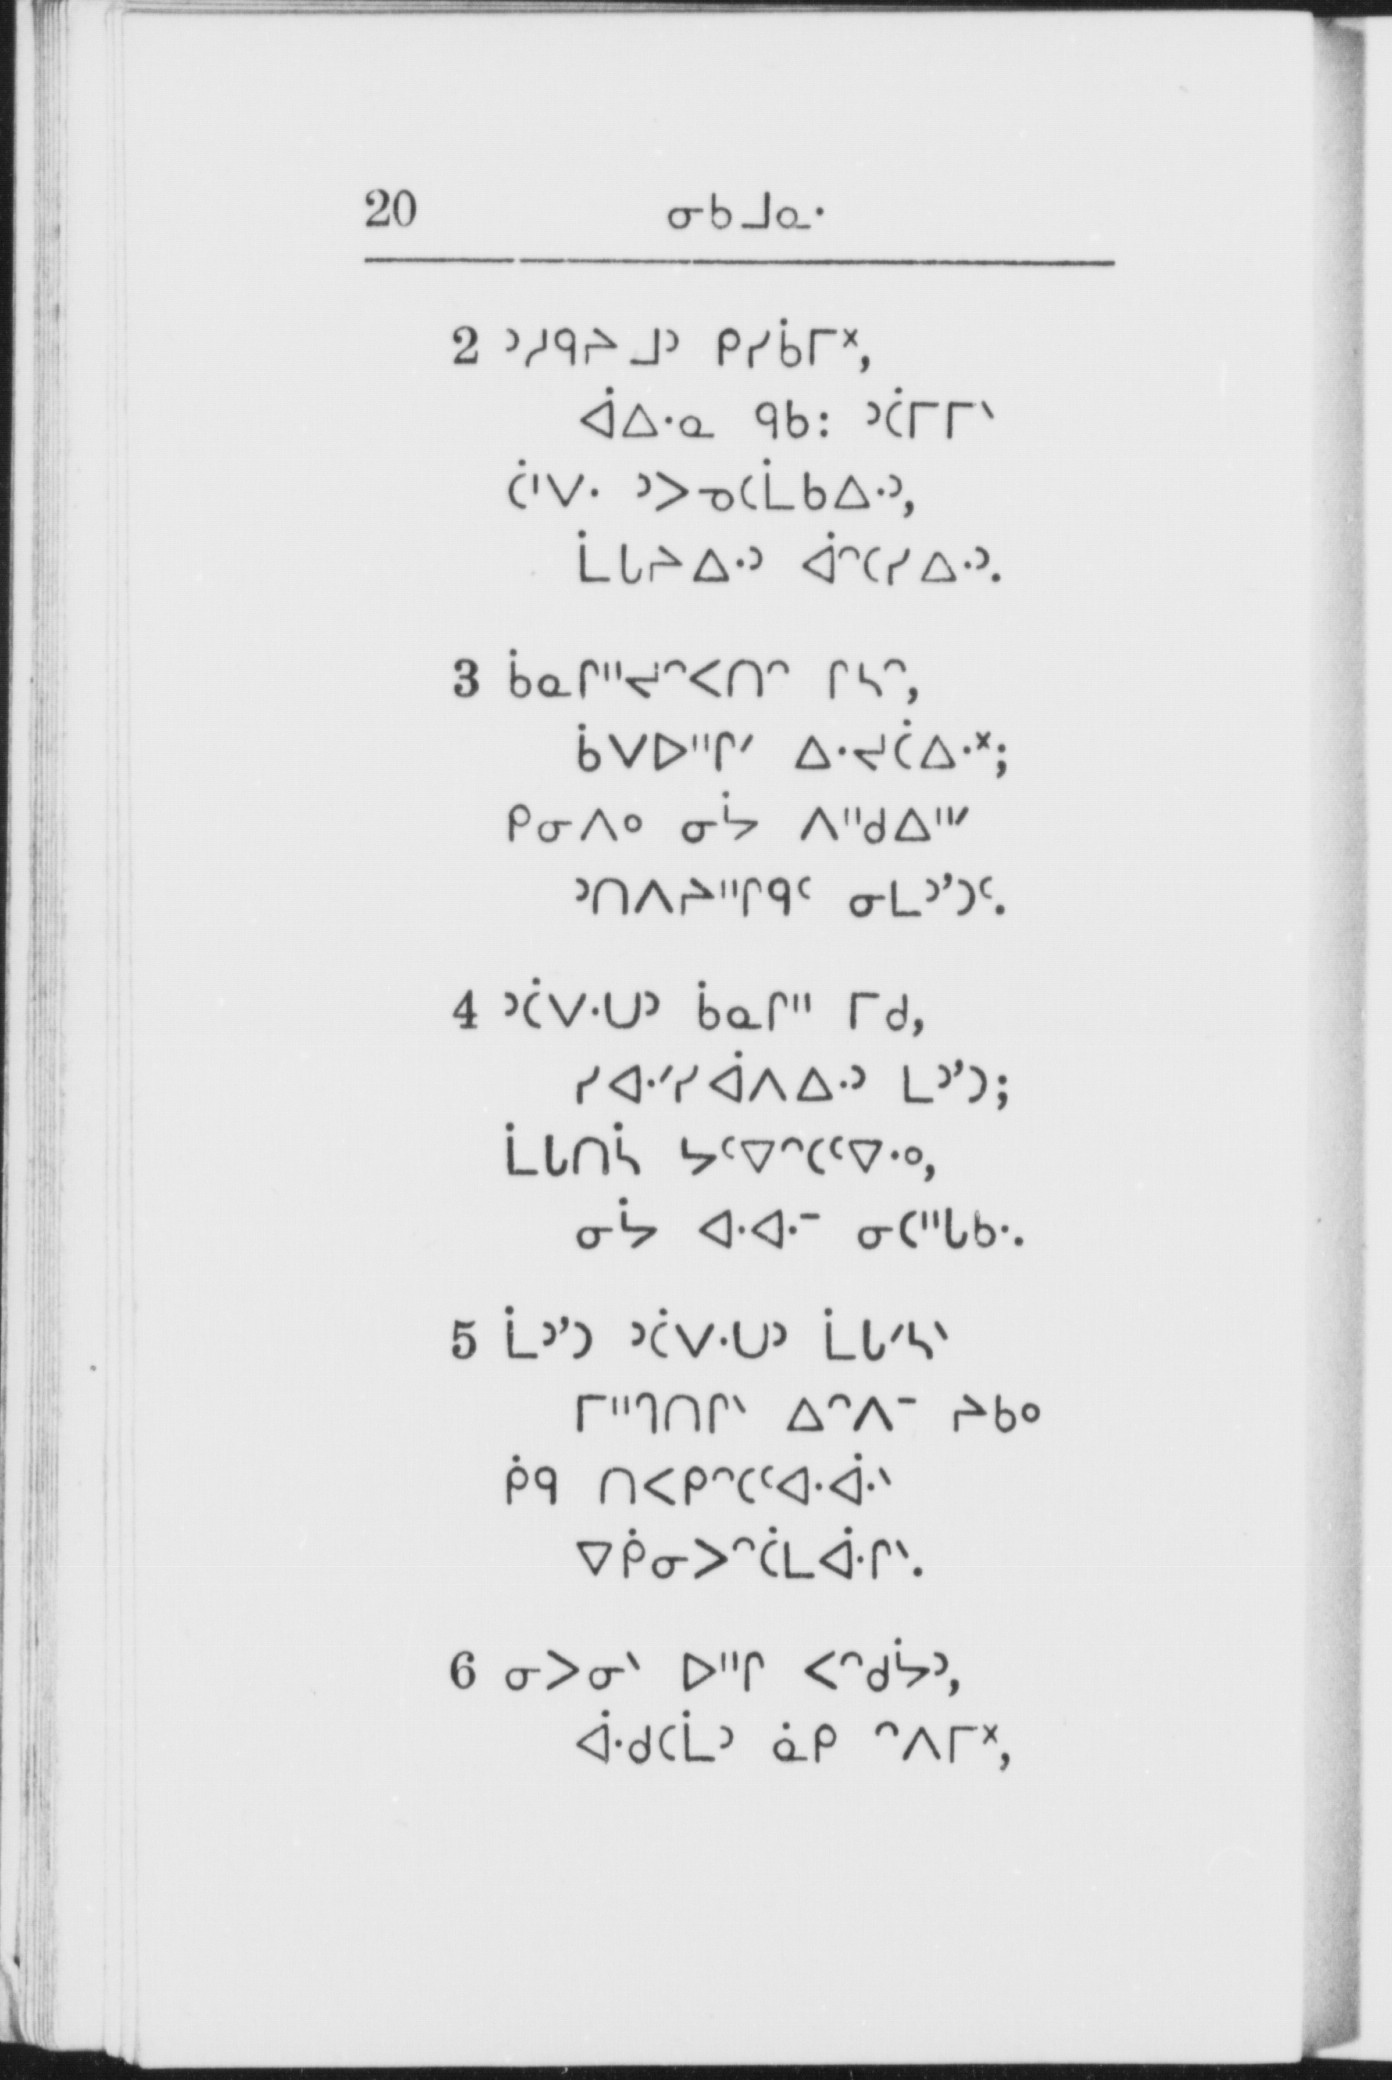 20 ᓂᑲᒧᓇᐧ
2 ᐣᓱᑫᔨᒧᐣ ᑭᓯᑳᒥᕽ,
ᐋᐃᐧᓇ ᑫᑲ: ᐣᑖᒥᒥᐠ
ᑖᑊᐯᐧ ᐣᐳᓀᑕᒫᑲᐃᐧᐣ,
ᒫᒐᔨᐃᐧᐣ ᐋᐢᑕᓯᐃᐧᐣ.
3 ᑳᓇᒋᐦᔪᐢᐸᑎᐢ ᒋᓴᐢ,
ᑳᐯᐅᐦᒋᐟ ᐃᐧᔪᑖᐃᐧᕽ;
ᑭᓂᐱᐤ ᓂᔭ ᐱᐦᑯᐃᐦᐟ
ᐣᑎᐱᔨᐦᒋᑫᑦ ᓂᒪᐣ’ᑐᑦ.
4 ᐣᑖᐯᐧᑌᐣ ᑳᓇᒋᐦ ᒥᑯ,
ᓯᐊᐧᐟᓯᐋᐱᐃᐧᐣ ᒪᐣ’ᑐ;
ᒫᒐᑎᓵ ᔭᑦᐁᐢᑕᑦᐁᐧᐤ,
ᓂᔭ ᐊᐧᐊᐧᐨ ᓂᑕᐦᒐᑲᐧ.
5 ᒫᐣ’ᑐ ᐣᑖᐯᐧᑌᐣ ᒫᒐᐟᓴᐠ
ᒥᐦᒉᑎᒋᐠ ᐃᐢᐱᐨ ᔨᑲᐤ
ᑮᑫ ᑎᐸᑭᐢᑕᑦᐊᐧᐋᐧᐠ
ᐁᑮᓂᐳᐢᑖᒪᐋᐧᒋᐠ.
6 ᓂᐳᓂᐠ ᐅᐦᒋ ᐸᐢᑯᔮᐣ,
ᐋᐧᑯᑕᒫᐣ ᓈᑭ ᐢᐱᒥᕽ,